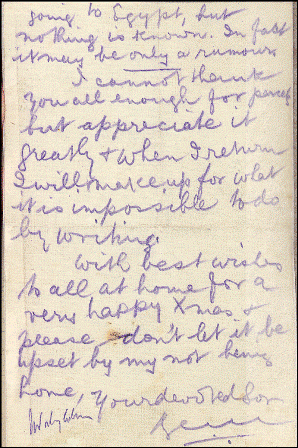 going to Egypt, but
nothing is known. In fact
it may be only a rumour
I cannot thank
you all enough for parcel
but appreciate it
greatly & when I return
I will make up for what
it is impossible to do
by writing.
With best wishes
to all at home for a
very happy Xmas &
please don't let it be
upset by my not being
home, Your devoted Son